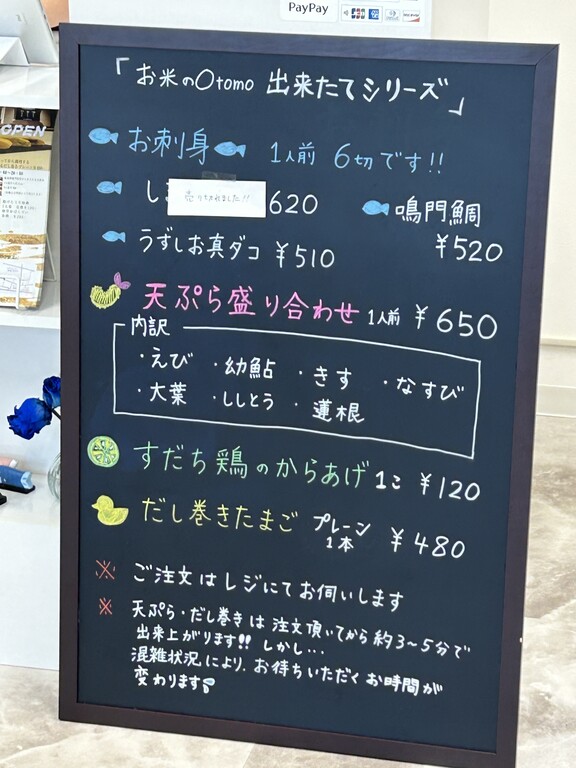 PayPay
OPEN
「お米のOtomo 出来たてシリーズ」
お刺身 1人前 6切です!!
し
売り切れました!!
620
鳴門鯛
¥520
うずしお真ダコ ¥510
天ぷら盛り合わせ 1人前 ¥650
内訳
・えび ・幼鮎 ・きす ・なすび
・大葉 ・ししとう ・蓮根
すだち鶏のからあげ 1コ ¥120
だし巻きたまご プレーン 1本 ¥480
※ ご注文はレジにてお伺いします
※ 天ぷら・だし巻きは注文頂いてから約3~5分で
出来上がります!! しかし…
混雑状況により、お待ちいただくお時間が
変わります